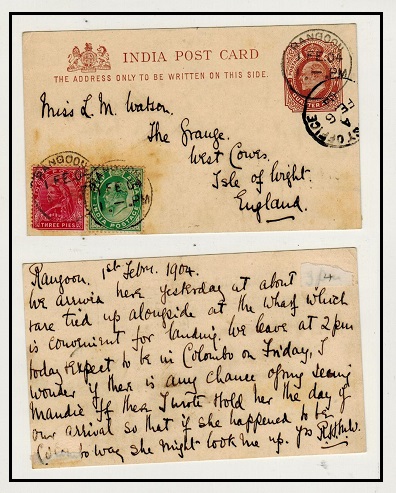 INDIA POST CARD
THE ADDRESS ONLY TO BE WRITTEN ON THIS SIDE.
RANGOON
1 FE 04
1 PM
Miss L. M. Watson.
The Grange.
West Cowes.
Isle of Wight.
England.
RANGOON
1 FE 0
THREE PIES
INDIA POSTAGE
Rangoon. 1st Febr. 1904.
We arrived here yesterday at about
are tied up alongside at the wharf which
is convenient for landing. We leave at 2 pm
today & expect to be in Colombo on Friday, I
wonder if there is any chance of my seeing
Maudie If there I wrote told her the day of
our arrival so that if she happened to be
to way she might look me up. Yrs